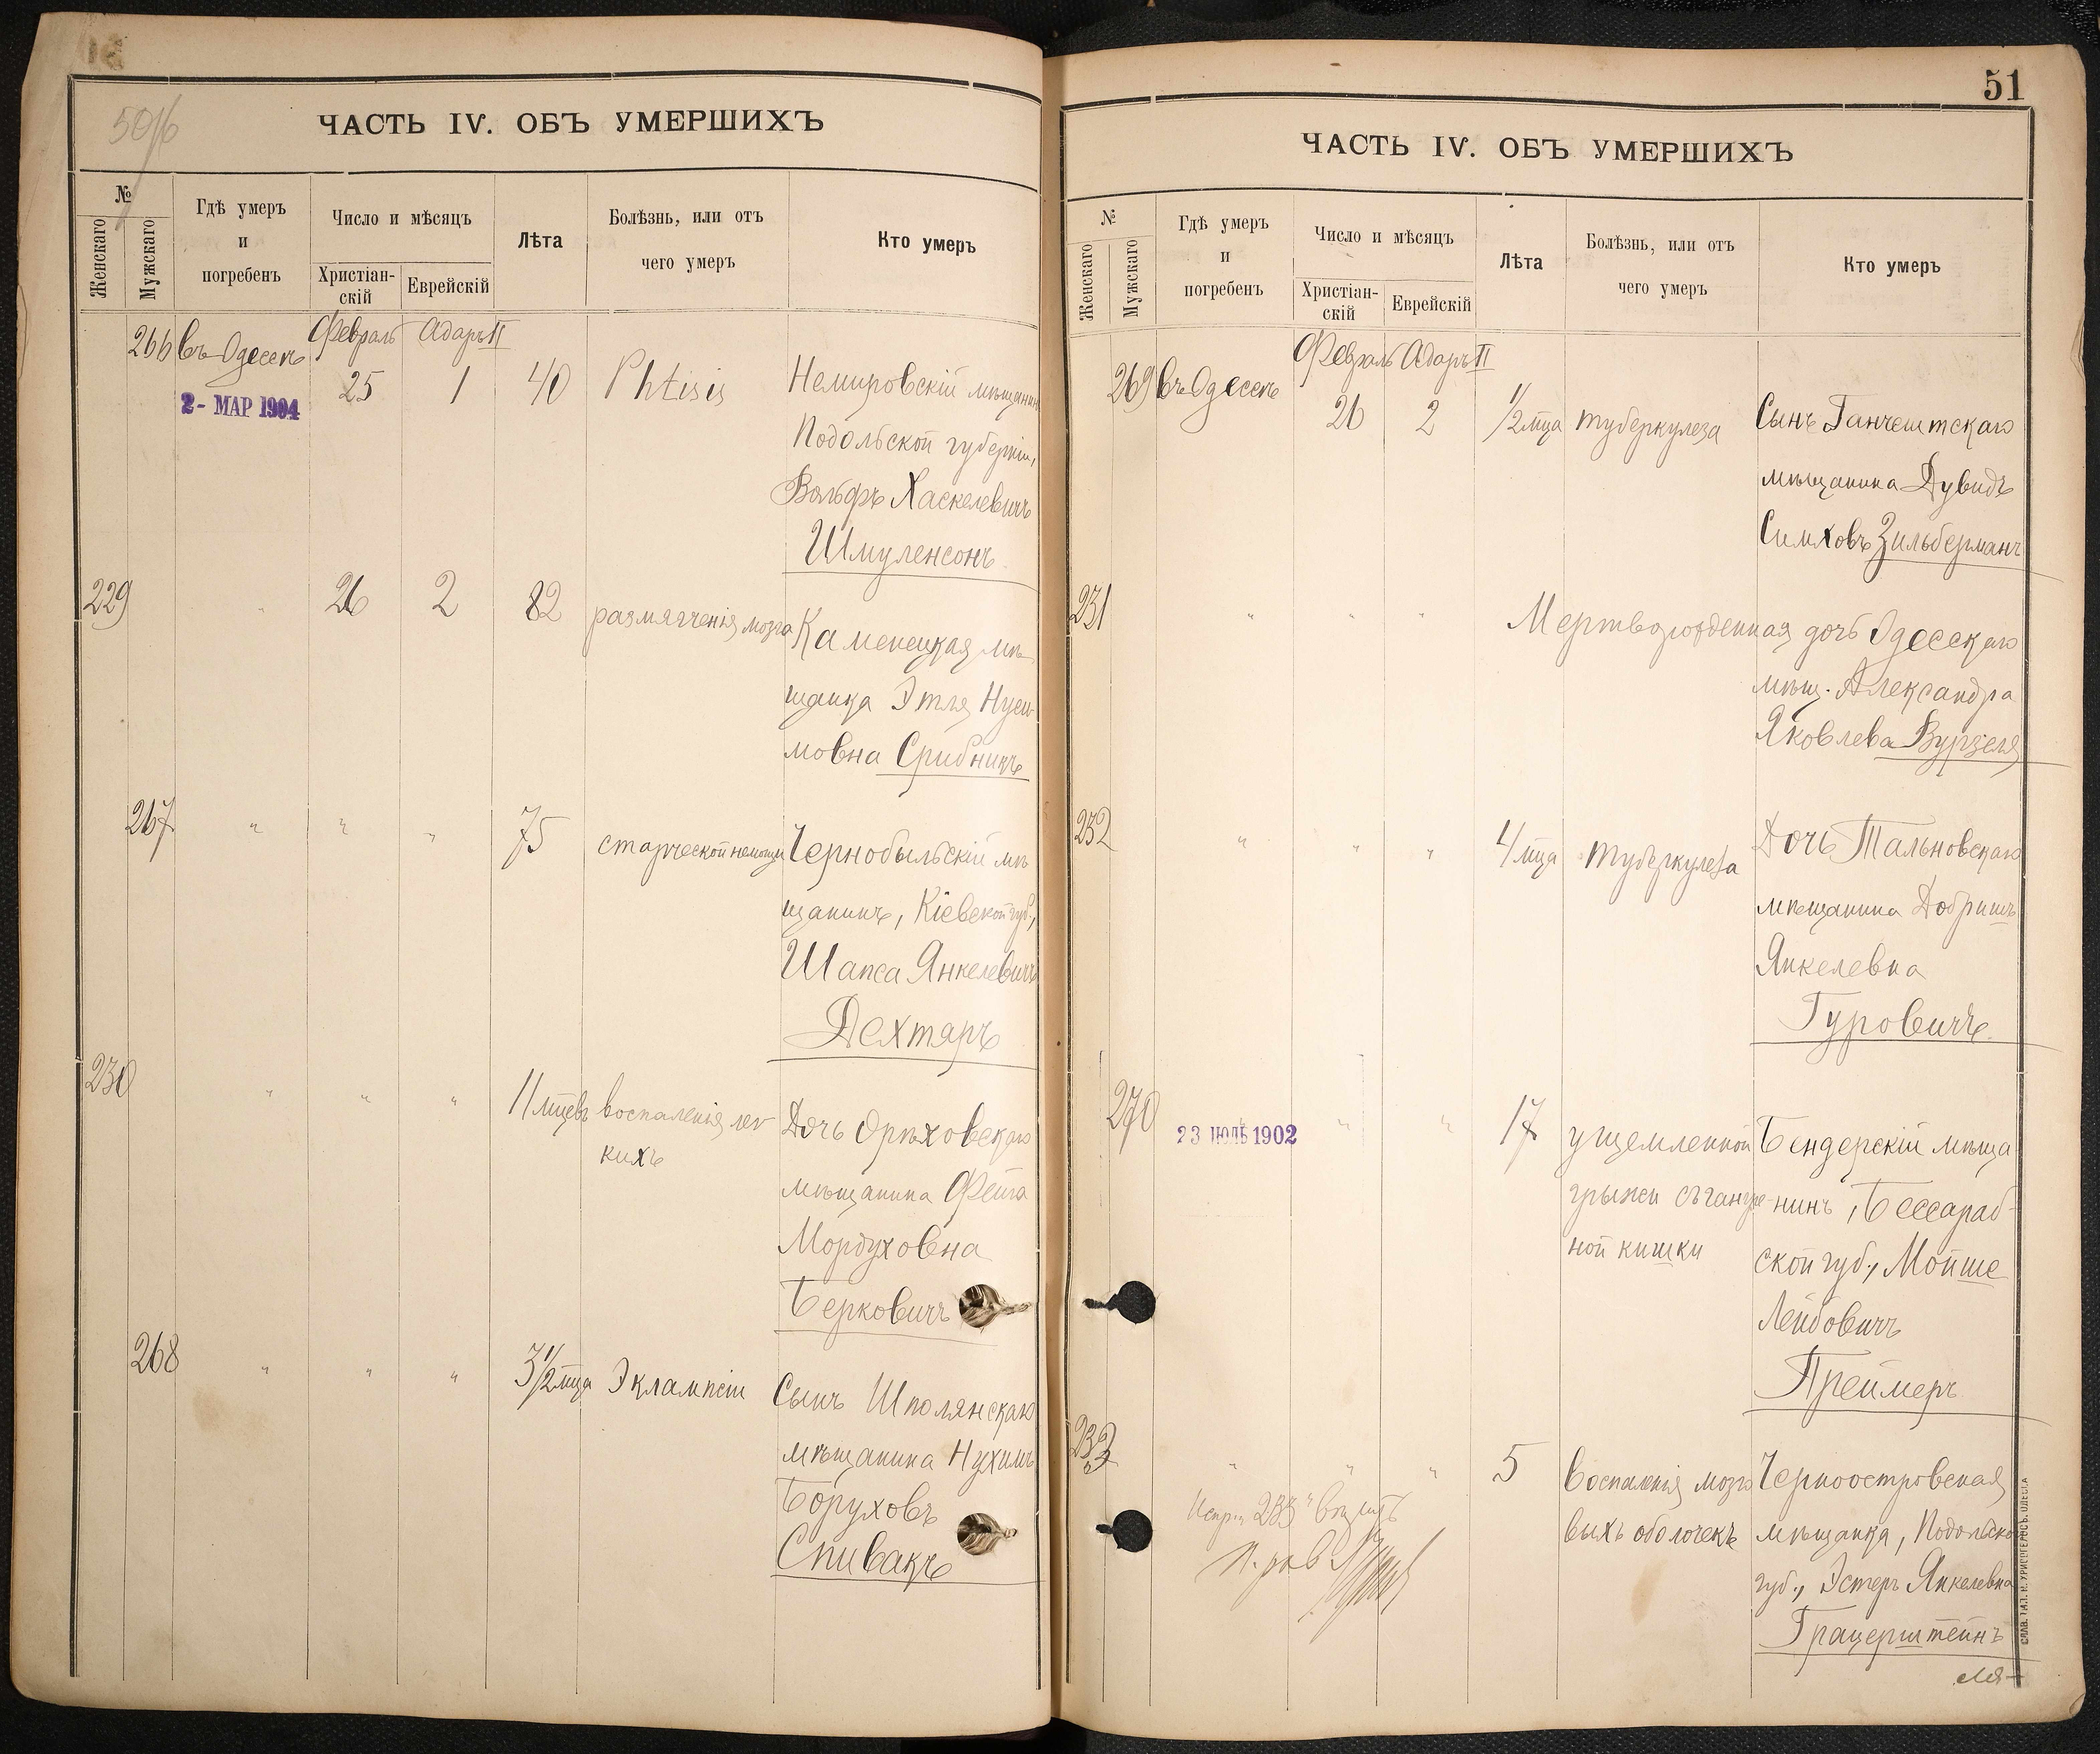 ЧАСТЬ IV. ОБЪ УМЕРШИХЪ
№
Женскаго
Мужскаго
Гдѣ умеръ
и
погребенъ
Число и мѣсяцъ
Христіан-
скій
Еврейскій
Лѣта
Болѣзнь, или отъ
чего умеръ
Кто умеръ
266 въ Одессѣ Февраль Адаръ II
25 1 40 Phtisis Немировскій мѣщанинъ
2- МАР 1904
Подольской губерніи,
Вольфъ Хаскелевичъ
Шмуленсонъ
229 " 26 2 82 размягченія мозга Каменецкая мѣ-
щанка Этля Нуси-
мовна Срибникъ
267 " " " 75 старческой немощи Чернобыльскій мѣ-
щанинъ, Кіевской губ.,
Шапса Янкелевичъ
Дехтяръ
230 " " " 11 мцевъ воспаленія лег-
кихъ
Дочь Орѣховскаго
мѣщанина Фейга
Мордуховна
Берковичъ
268 " " " 3 1/2 мца Эклампсіи Сынъ Шполянскаго
мѣщанина Нухимъ
Боруховъ
Спивакъ
51
ЧАСТЬ IV. ОБЪ УМЕРШИХЪ
№
Женскаго
Мужскаго
Гдѣ умеръ
и
погребенъ
Число и мѣсяцъ
Христіан-
скій
Еврейскій
Лѣта
Болѣзнь, или отъ
чего умеръ
Кто умеръ
269 въ Одессѣ Февраль Адаръ II
26 2 1/2 мца туберкулеза Сынъ Ганчештскаго
мѣщанина Дувидъ
Симховъ Зильберманъ
231 " " " Мертворожденная дочь Одесскаго
мѣщ. Александра
Яковлева Вурзеля
232 " " " 4 мца туберкулеза Дочь Тальновскаго
мѣщанина Добришъ
Янкелевна
Гуровичъ
270 23 ІЮЛЬ 1902 " " 17 ущемленной Бендерскій мѣща-
грыжи съ гангре- нинъ, Бессараб-
ной кишки ской губ., Мойше
Лейбовичъ
Преймеръ
233 " " " 5 Воспаленія мозго- Черноостровская
выхъ оболочекъ мѣщанка, Подольской
губ., Эстеръ Янкелевна
Грацерштейнъ
Испр. "233"
СЛАВ. ТИП. Н. ХРИСОГЕЛОСЪ. ОДЕССА